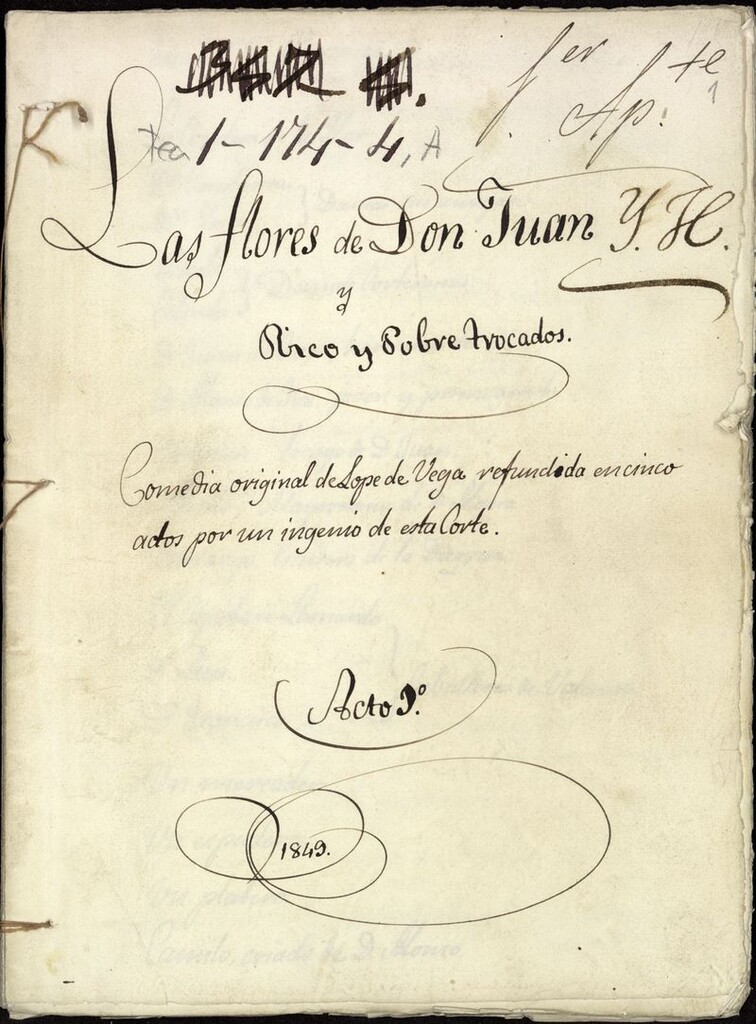 1er Apte
1
Tea 1-174-4, A
Las flores de Don Juan Y. H.
y
Rico y Pobre trocados.
Comedia original de Lope de Vega refundida en cinco
actos por un ingenio de esta Corte.
Acto 1º.
1849.